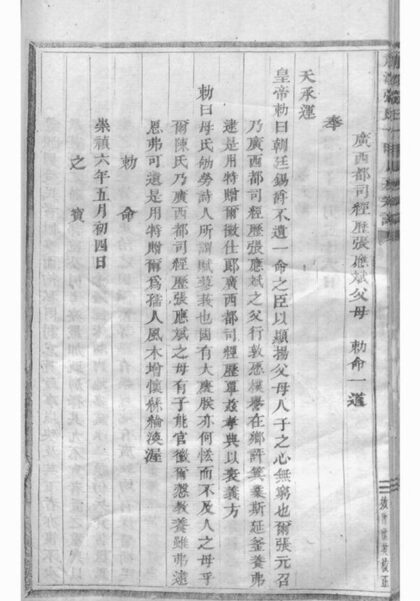 廣西都司經歷張應斌父母 勅命一道
奉
天承運
皇帝勅曰朝廷錫爵不遺一命之臣以顯揚父母人子之心無窮也爾張元召
乃廣西都司經歷張應斌之父行敦應樸譽在鄉評箕裘斯延釜養弗
逮是用特贈爾徵仕郎廣西都司經歷單茲孝典以表義方
勅曰母氏劬勞詩人所謂賦蓼莪也國有大慶朕亦何恡而不及人之母乎
爾陳氏乃廣西都司經歷張應斌之母有子能官徵爾慈教養雖弗逮
恩弗可遺是用特贈爾爲孺人風木增懷絲綸渙渥
勅命
崇禎六年五月初四日
之寶